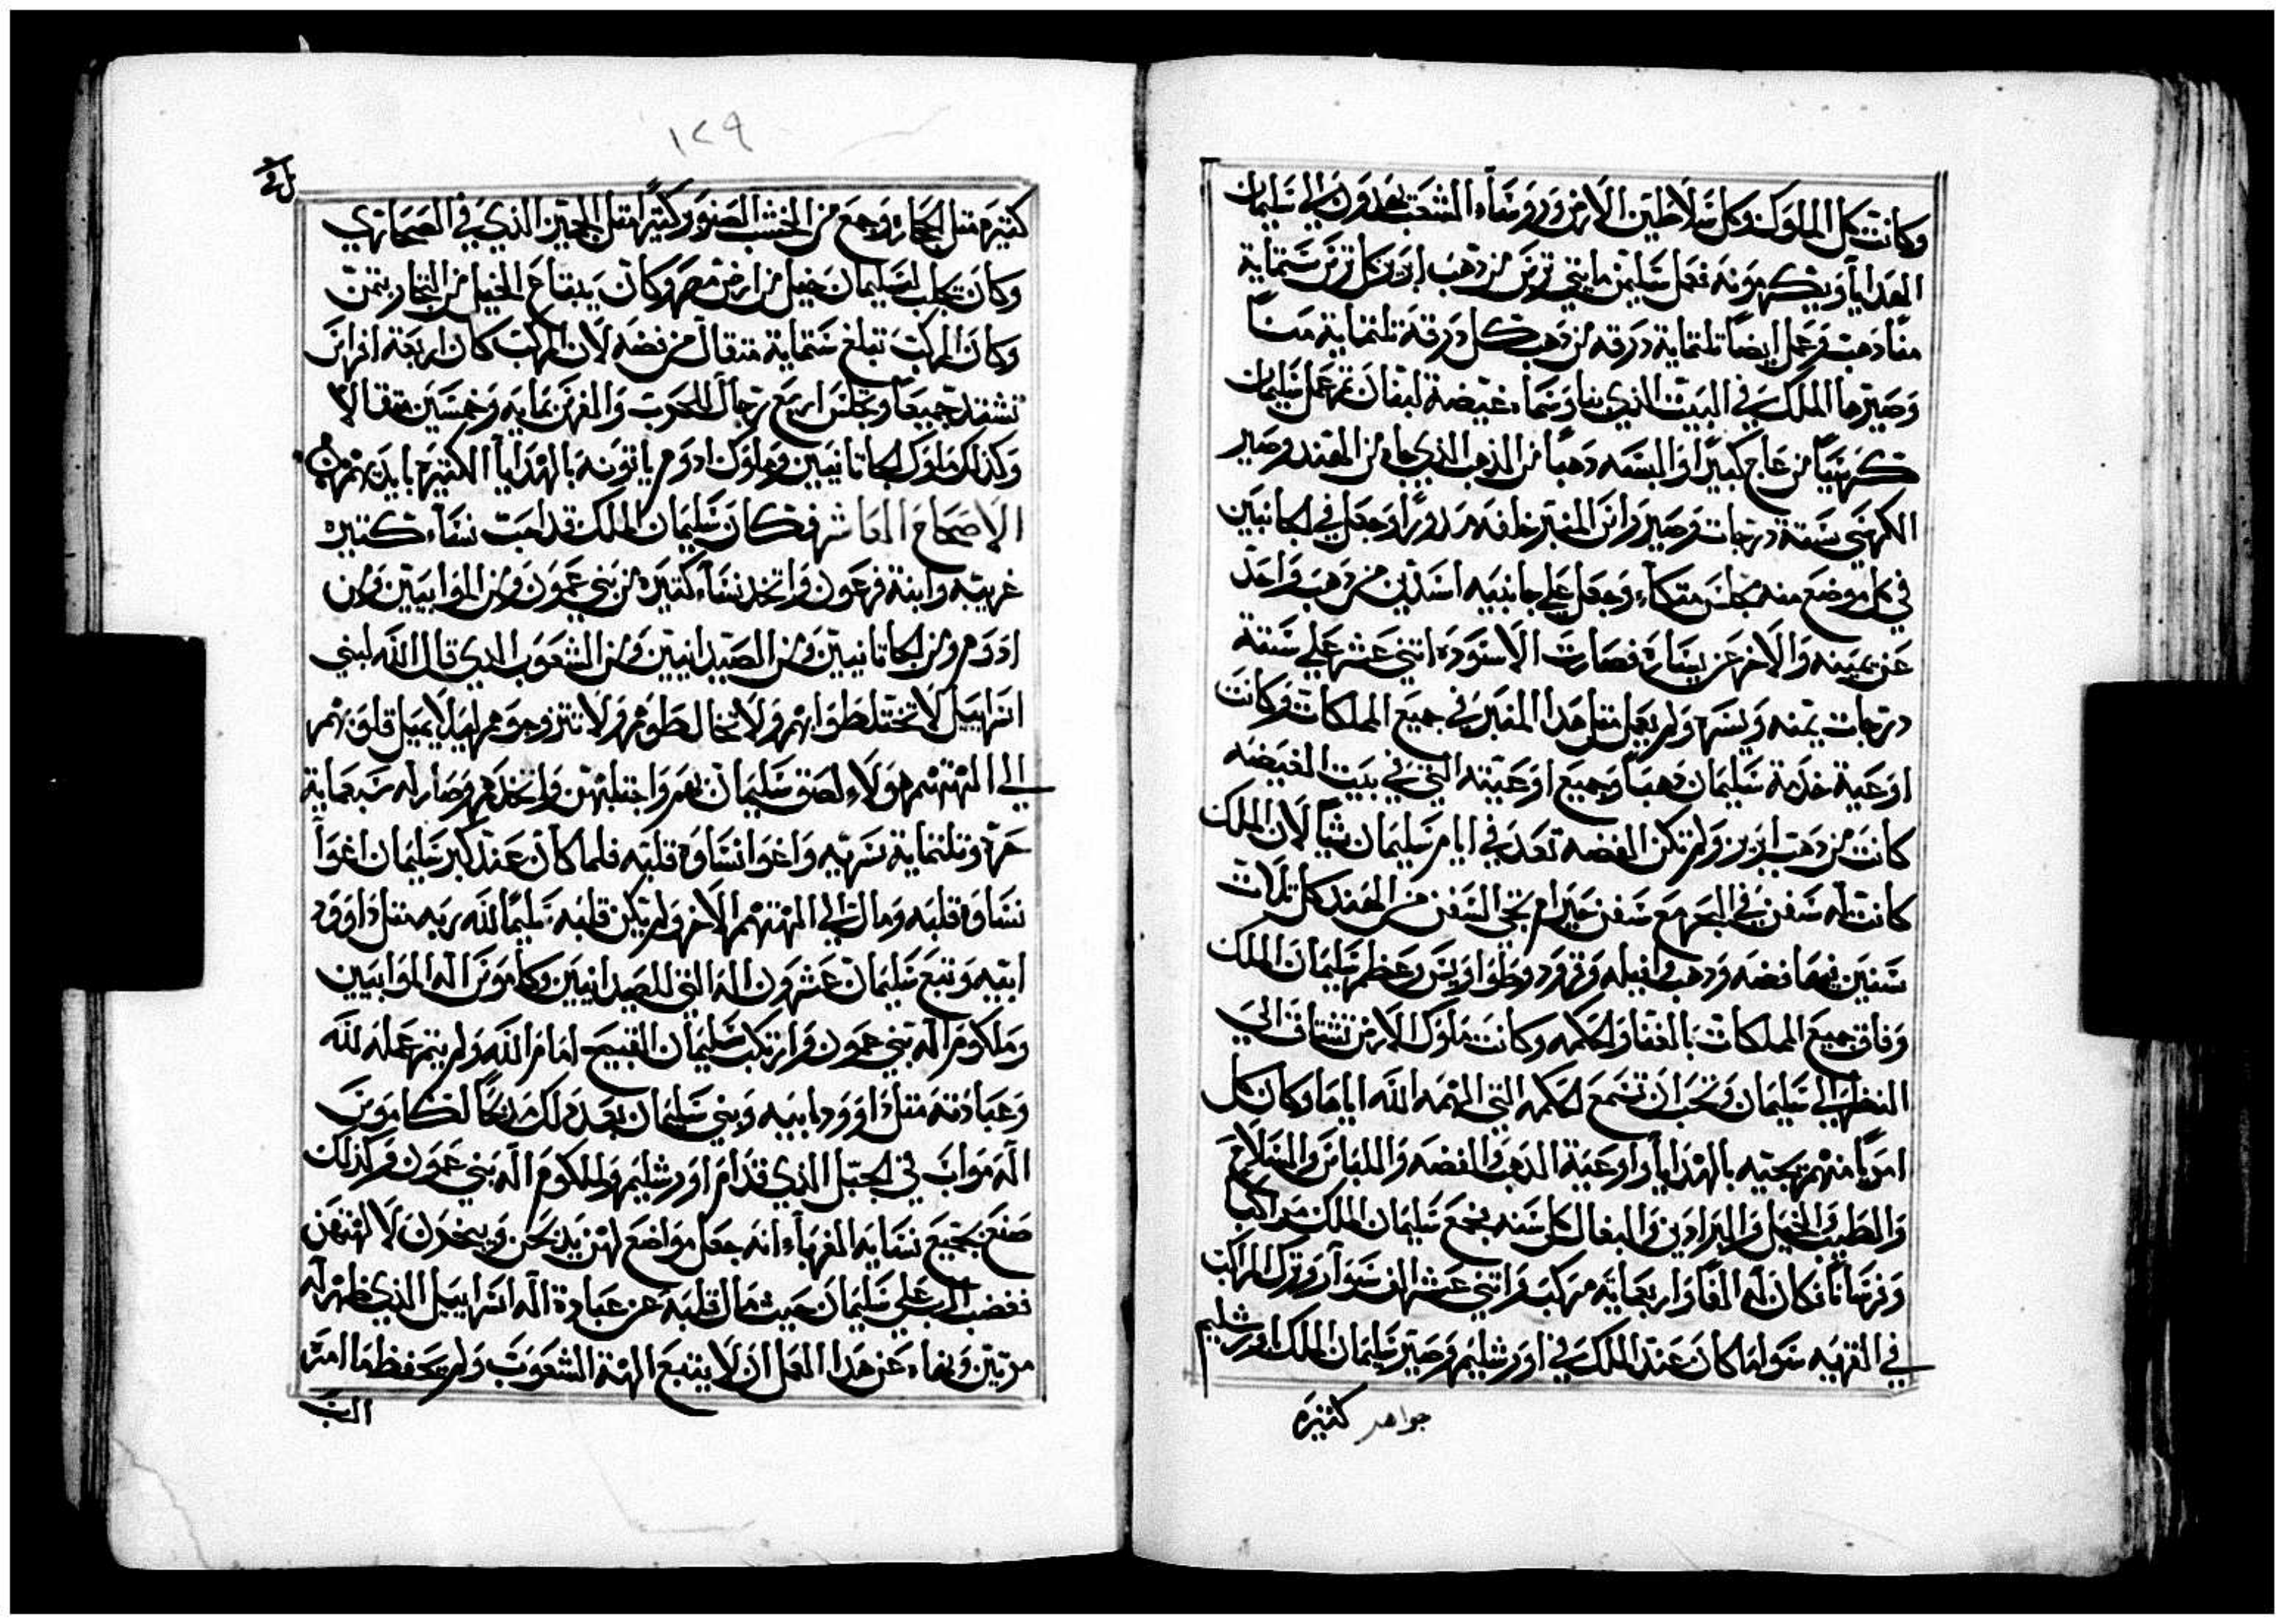 وكانت كل الملوك وكل سلاطين الارض وروساء الشعب يغدون الي سليمان
الهدايا ويكرمونه فعمل سليمن مايتي ترس من ذهب ابريز كل ترس ستماية
منا ذهب وعمل ايضا تلتماية درقه من ذهب كل درقة تلتماية منا
وصيرها الملك في البيت الذي بناه وسماه غيضة لبنان تم عمل سليمان
كرسيا من عاج كبيرا والبسه ذهبا من الذهب الذي جاه من الهند وصير
الكرسي ستة درجات وصير وراس المنبر خلفه مدورا وجعل في الجانبين
في كل موضع منه مجلس متكاء وجعل علي جانبيه اسدين من ذهب واحد
عن يمينه والاخر عن يساره فصارت الاسودة اتني عشر علي ستة
درجات يمنه ويسره ولم يعمل متل هدا المنبر في جميع المملكات وكانت
اوعية خدمة سليمان دهبا وجميع اوعيته التي في بيت الغيضه
كانت من دهب ابريز ولم تكن الفضه تعد في ايام سليمان شيا لان الملك
كانت له سفن في البحر مع سفن حيرام تجي السفن من الهند كل تلات
سنين فضه ودهب وافيله وقرود وطواويس وعظم سليمان الملك
وفاق جميع المملكات بالغنا والحكمه وكانت ملوك الارض تشتاق الي
النظر الي سليمان وتحب ان تسمع الحكمه التي الهمه الله اياها وكان كل
امريا منهم يجيه بالهدايا واوعية الدهب والفضه واللباس والسلاح
والطيب والخيل والبرادين والبغال كل سنه فجمع سليمان الملك مراكبا
وفرسانا فكان له الفا واربعماية مركب واتني عشر الف سوار وترك المراكب
في القريه سوا ما كان عند الملك في اورشليم وصير سليمان الملك اورشليم
جواهر كتيره
١٢٩
كتيره متل الحجاره وجمع من الخشب الصنوبر كتيرا متل الجميز الذي في الصحاري
وكان تجلب لسليمان خيل من ارض مصر وكان يبتاع الخيل من التجار بتمن
وكان المركب تبلغ ستماية متقال من فضه لان المركب كان اربعة افراس
تشتد جميعا ويجلس اربع رجال للحرب والفرس بمايه وخمسين متقالا
وكذلك ملوك الحاتانيين وملوك ادوم ياتونه بالهدايا الكتيره بايديهم
الاصحاح العاشر فكان سليمان الملك قد احب نساء كتيره
غريبه وابنة فرعون واتخد نساء كتيره من بني عمون ومن الموابيين ومن
ادوم ومن الحاتانيين ومن الصيدانيين ومن الشعوب الدي قال الله لبني
اسراييل لا تختلطوا بهم ولا تخالطوهم ولا تتزوجوهم ليلا يميل قلوبهم
الي الهتهم هولاء لصق سليمان بهم واجتلبهن واتخدهم وصار له سبعماية
حره وتلتماية سريه واغوا نساوه قلبه فلما كان عند كبر سليمان اغوا
نساوه قلبه ومال الي الهتهم الاخر ولم يكن قلبه سليما لله ربه متل داوود
ابيه وتبع سليمان عشرون اله التي للصيدانيين وكاموس اله الموابيين
وملكوم اله بني عمون وارتكب سليمان القبيح امام الله ولم يتم عمله لله
وعبادته متل داوود ابيه وبني سليمان بعد دلك مدبحا لكاموس
اله مواب في الجبل الذي قدام اورشليم ولملكوم اله بني عمون وكذلك
صنع بجميع نسايه الغرباء انه جعل مواضع لهن يدبحن ويبخرون لالهتهن
فغضب الرب علي سليمان حيت مال قلبه عن عبادة اله اسراييل الذي ظهر له
مرتين ونهاه عن هدا العمل ان لا يتبع الهة الشعوب ولم يحفظ ما امر
الرب